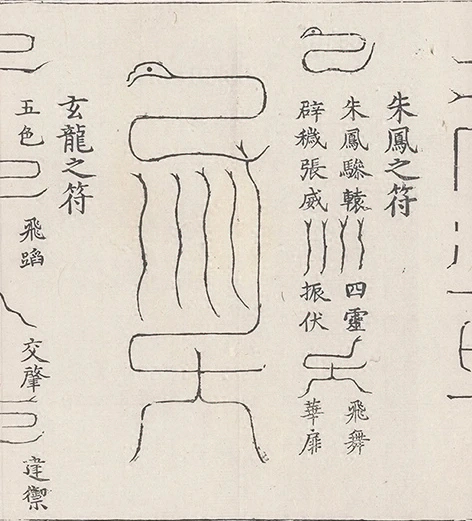 朱鳳之符
朱鳳驂轅 四靈 飛舞
辟穢張威 振伏 華扉
玄龍之符
五色 飛蹈 交肇 禦